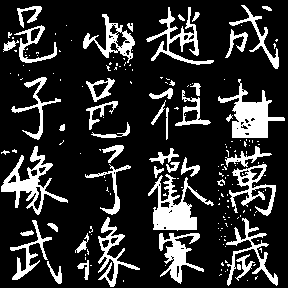 成萬歲
趙祖歡
小邑子像
邑子像武